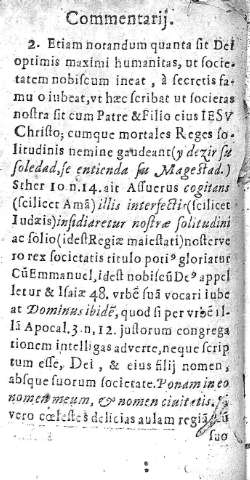 Commentarij.
2. Etiam notandum quanta sit Dei
optimi maximi humanitas, ut socie-
tatem nobiscum ineat, à secretis fa-
mulo iubeat, vt hæc scribat ut societas
nostra sit cum Patre & Filio eius IESV
Christo; cumque mortales Reges so-
litudinis nemine gaudeant (y dezir su
soledad, se entienda su Magestad.)
Sther 10 n. 14. ait Assuerus cogitans
(scilicet Amã) illis interfectis (scilicet
Iudæis) insidiaretur nostræ solitudini
ac solio (idest Regiæ maiestati) noster ve-
ro rex societatis titulo potiꝰ gloriatur
Cũ Emmanuel, idest nobiscũ Deꝰ appel
letur & Isaiæ 48. vrbẽ suã vocari iube
at Dominus ibidẽ, quod si per vrbẽ il-
lã Apocal. 3. n. 12. iustorum congrega
tionem intelligas adverte, neque scrip
tum esse, Dei, & eius filij nomen,
absque suorum societate. Ponam in eo
nomen meum, & nomen ciuitatis.
vero cœlestes delicias aulam regiã
suo